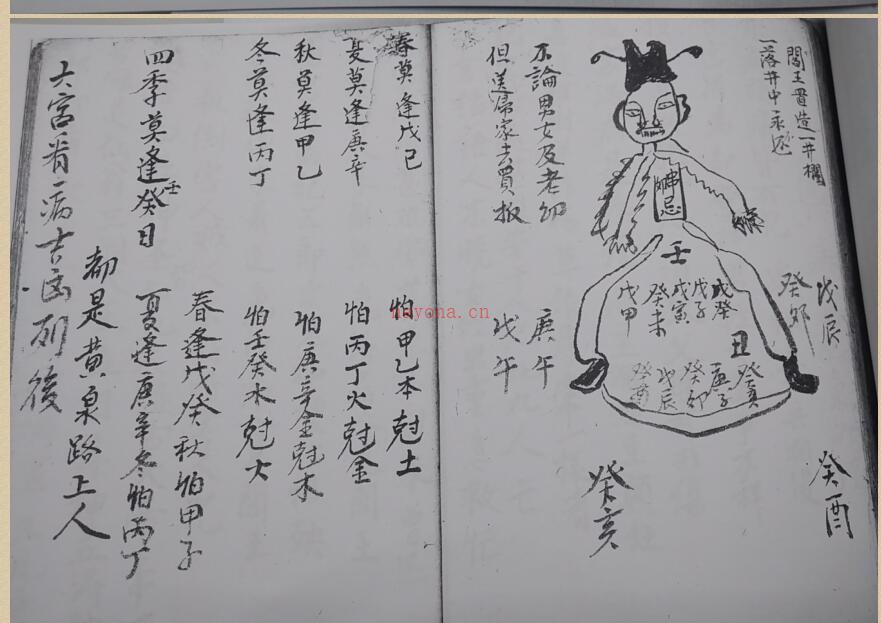 閻王置造一井欄
一落井中永
不論男女及老幼
但送歸家去買板
戊辰
癸卯
癸酉
弗忌
壬
戊癸
戊子
戊寅
癸未
戊甲
丑
癸亥
庚子
癸卯
戊辰
癸酉
庚午
戊午
癸亥
春莫逢戊己 怕甲乙木尅土
夏莫逢庚辛 怕丙丁火尅金
秋莫逢甲乙 怕庚辛金尅木
冬莫逢丙丁 怕壬癸水尅火
四季莫逢癸壬日
春逢戊癸秋怕甲子
夏逢庚辛冬怕丙丁
都是黄泉路上人
六宮看病吉凶列後
nayona.cn